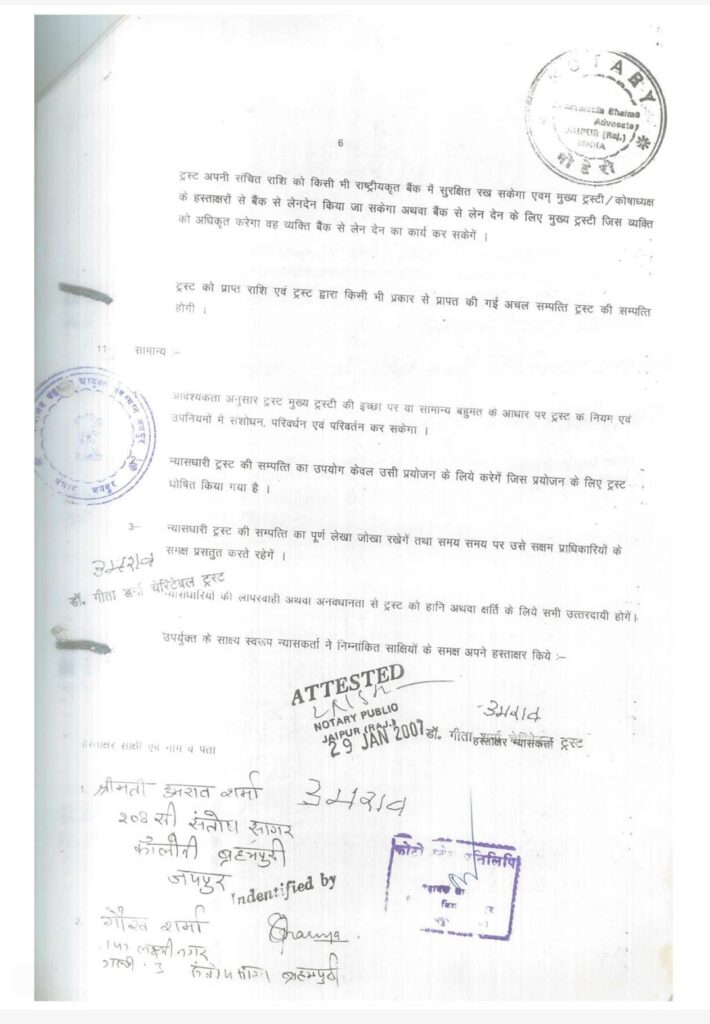 NOTARY
Advocate
JAIPUR (Raj.)
INDIA
नोटेरी
6
ट्रस्ट अपनी संचित राशि को किसी भी राष्ट्रीयकृत बैंक में सुरक्षित रख सकेगा एवम् मुख्य ट्रस्टी/कोषाध्यक्ष
के हस्ताक्षरों से बैंक से लेनदेन किया जा सकेगा अथवा बैंक से लेन देन के लिए मुख्य ट्रस्टी जिस व्यक्ति
को अधिकृत करेगा वह व्यक्ति बैंक से लेन देन का कार्य कर सकेगें ।
ट्रस्ट को प्राप्त राशि एवं ट्रस्ट द्वारा किसी भी प्रकार से प्रापत की गई अचल सम्पत्ति ट्रस्ट की सम्पत्ति
होगी ।
11 सामान्य :-
आवश्यकता अनुसार ट्रस्ट मुख्य ट्रस्टी की इच्छा पर या सामान्य बहुमत के आधार पर ट्रस्ट क नियम एवं
उपनियमों में संशोधन, परिवर्धन एवं परिवर्तन कर सकेगा ।
न्यासधारी ट्रस्ट की सम्पत्ति का उपयोग केवल उसी प्रयोजन के लिये करेगें जिस प्रयोजन के लिए ट्रस्ट
घोषित किया गया है ।
3- न्यासधारी ट्रस्ट की सम्पत्ति का पूर्ण लेखा जोखा रखेगें तथा समय समय पर उसे सक्षम प्राधिकारियों के
समक्ष प्रसतुत करते रहेगें ।
उमराव
डॉ. गीता शर्मा चेरिटेबल ट्रस्ट
न्यासधारियों की लापरवाही अथवा अनवधानता से ट्रस्ट को हानि अथवा क्षर्ति के लिये सभी उत्तरदायी होगें।
उपर्युक्त के साक्ष्य स्वरूप न्यासकर्ता ने निम्नांकित साक्षियों के समक्ष अपने हस्ताक्षर किये :-
ATTESTED
NOTARY PUBLIC
JAIPUR (RAJ.)
29 JAN 2007
उमराव
डॉ. गीता शर्मा चेरिटेबल ट्रस्ट
हस्ताक्षर न्यासकर्ता
हस्ताक्षर साक्षी एवं नाम व पता
1. श्रीमती उमराव शर्मा उमराव
२०४ सी संतोष सागर
कॉलोनी ब्रह्मपुरी
जयपुर
Indentified by
2. गौरव शर्मा Sharma
लक्ष्मी नगर
ब्रह्मपुरी
फोटो प्रतिलिपि